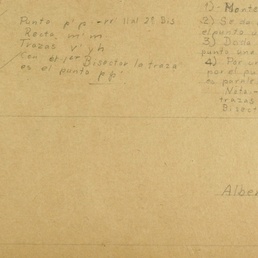 Punto p' p - rr' ll al 2º Bis.
Recta, m' m
Trazas v' y h
Con el 1er Bisector la traza
es el punto p p'
1) - 
2) Se da
el punto u
3) Dado
punto una
4) Por un
por el pu
tu parale
Nota -
trazas
Bisect
Alber